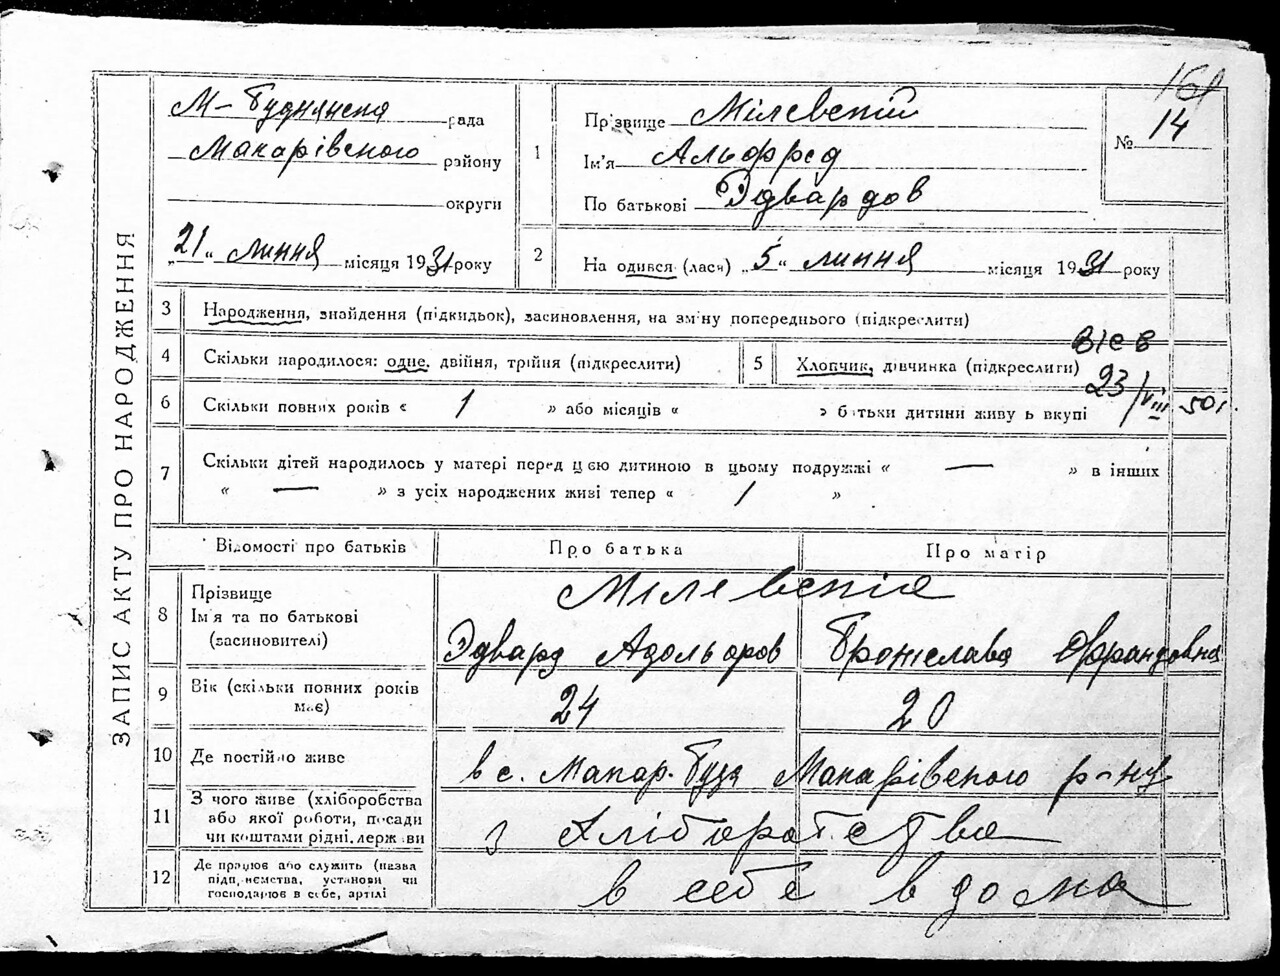 161
М-Буднянська рада
Макарівського району
округи
„21“ липня місяця 1931 року
1
Прізвище Мілевський
Ім'я Альфред
По батькові Эдвардов
№ 14
2
На одився (лася) „5“ липня місяця 1931 року
ЗАПИС АКТУ ПРО НАРОДЖЕННЯ
3 Народження, знайдення (підкидьок), засиновлення, на зміну попереднього (підкреслити)
4 Скільки народилося: одне, двійня, трійня (підкреслити)
5 Хлопчик, дівчинка (підкреслити)
23/VIII 50 г.
6 Скільки повних років « 1 » або місяців « » батьки дитини живуть вкупі
7 Скільки дітей народилось у матері перед цією дитиною в цьому подружжі « — » в інших
« — » з усіх народжених живі тепер « 1 »
Відомості про батьків
Про батька
Про матір
8 Прізвище
Ім'я та по батькові
(засиновителі)
Мілевські
Эдвард Адольфов
Броніслава
9 Вік (скільки повних років
має)
24
20
10 Де постійно живе
в с. Макар. Буда Макарівського р-ну
11 З чого живе (хліборобства
або якої роботи, посади
чи коштами рідні, держави
з хліборобства
12 Де працює або служить (назва
підприємства, установи чи
господарює в себе, артілі
в себе в дома